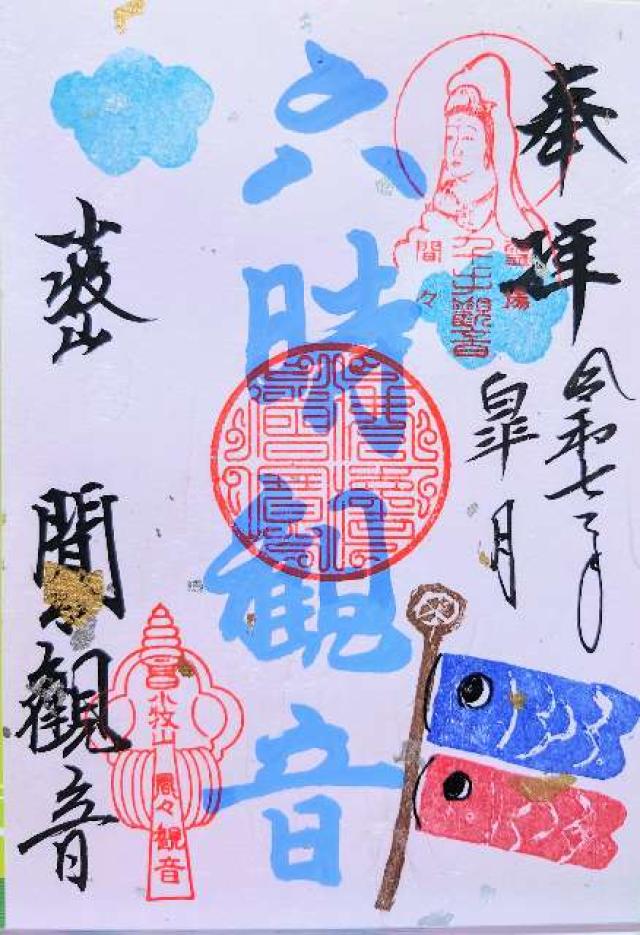 奉拝
令和七年
皐月
霊場
千手觀音
間々
六時観音
小牧山
間々観音
小牧山
間々観音